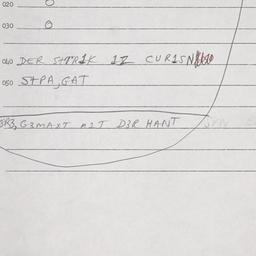 020
030
040 DER STTR1K 1Z CUR1SN
050 STPA,GAT
3R3,G3MAXT M1T D3R HANT